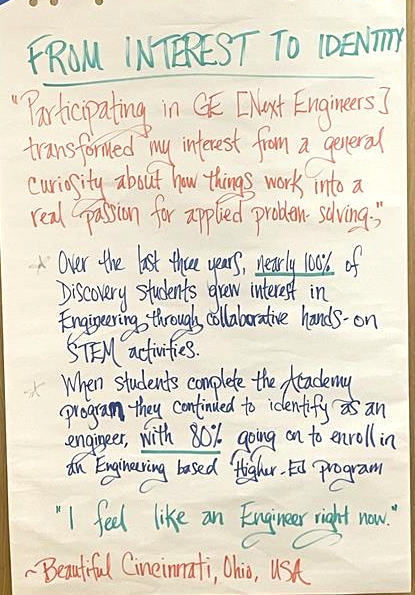 FROM INTEREST TO IDENTITY
"Participating in GE [Next Engineers]
transformed my interest from a general
curiosity about how things work into a
real passion for applied problem-solving."
* Over the last three years, nearly 100% of
Discovery Students grew interest in
Engineering through collaborative hands-on
STEM activities.
* When students complete the Academy
program they continued to identify as an
engineer, with 80% going on to enroll in
an Engineering based Higher-Ed program
"I feel like an Engineer right now."
~Beautiful Cincinnati, Ohio, USA